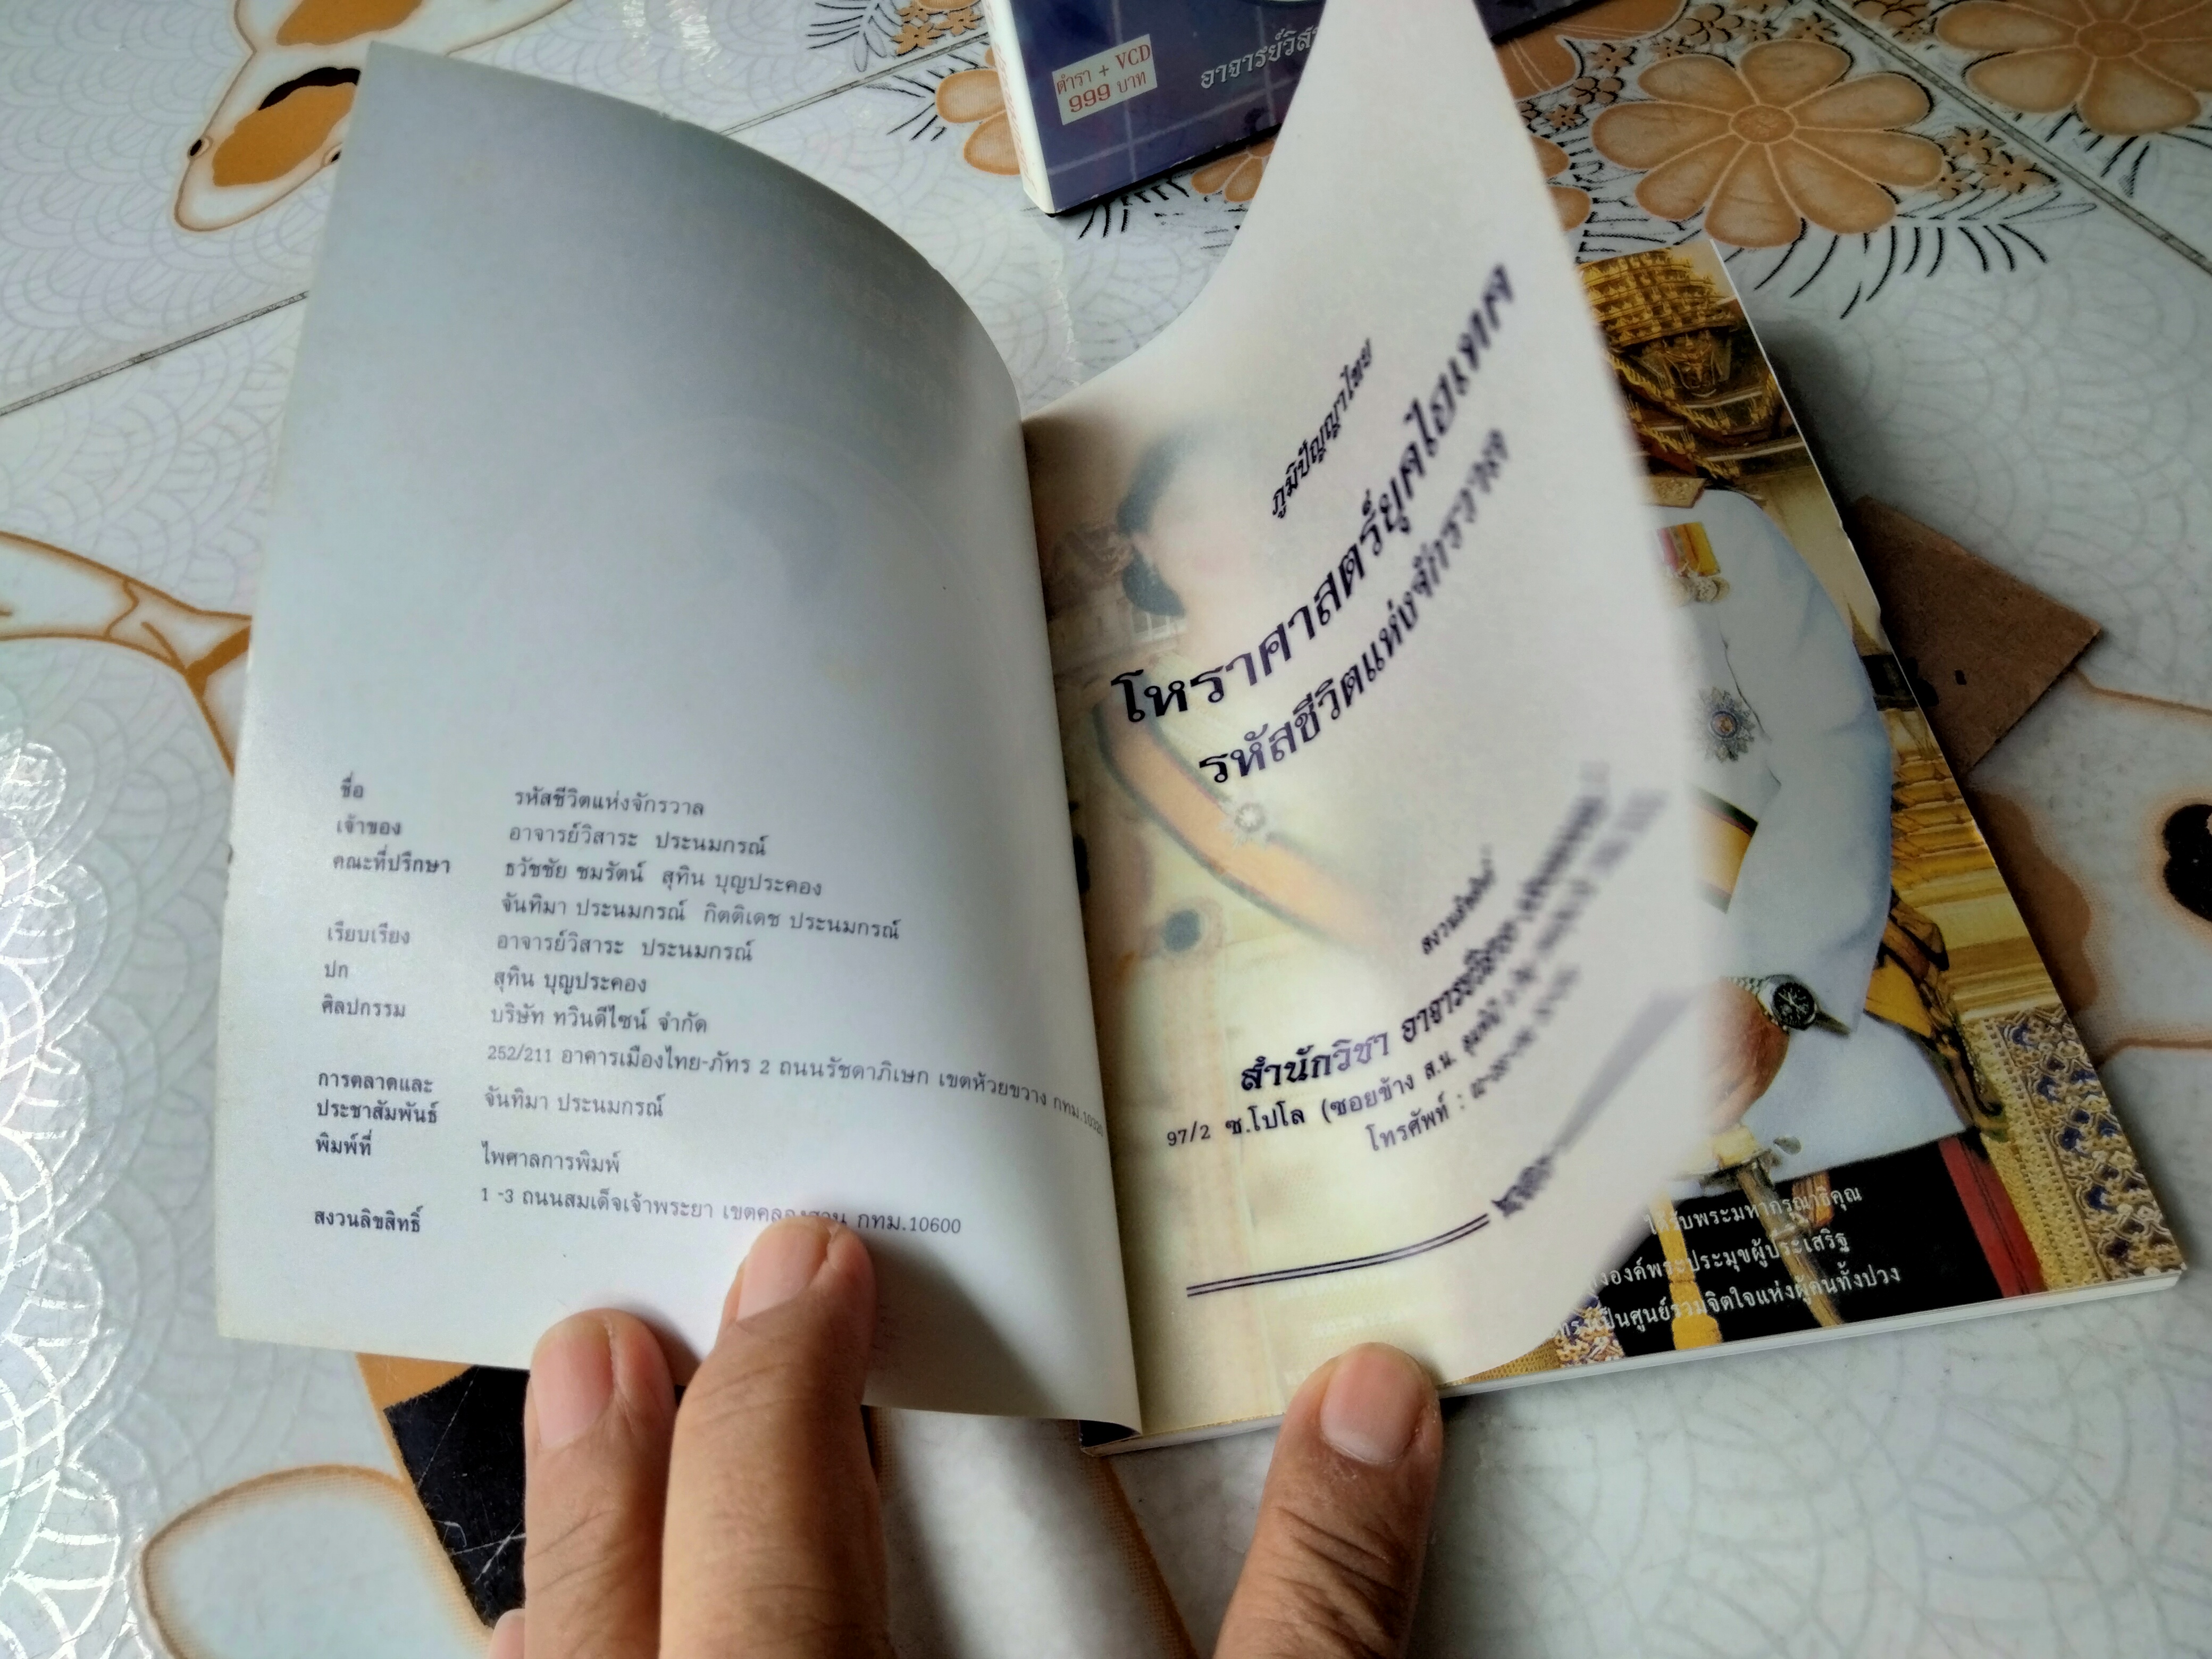 ตำรา + VCD
999 บาท
อาจารย์
ชื่อ รหัสชีวิตแห่งจักรวาล
เจ้าของ อาจารย์วิสาระ ประนมกรณ์
คณะที่ปรึกษา ธวัชชัย ชมรัตน์ สุทิน บุญประคอง
จันทิมา ประนมกรณ์ กิตติเดช ประนมกรณ์
เรียบเรียง อาจารย์วิสาระ ประนมกรณ์
ปก สุทิน บุญประคอง
ศิลปกรรม บริษัท ทวินดีไซน์ จำกัด
252/211 อาคารเมืองไทย-ภัทร 2 ถนนรัชดาภิเษก เขตห้วยขวาง กทม.10320
การตลาดและ
ประชาสัมพันธ์ จันทิมา ประนมกรณ์
พิมพ์ที่ ไพศาลการพิมพ์
1 -3 ถนนสมเด็จเจ้าพระยา เขตคลองสาน กทม.10600
สงวนลิขสิทธิ์
ภูมิปัญญาไทย
โหราศาสตร์ยุคไฮเทค
รหัสชีวิตแห่งจักรวาล
สงวนลิขสิทธิ์
สำนักวิชา อาจารย์วิสาระ ประนมกรณ์
97/2 ซ.โปโล (ซอยข้าง ส.น. ลุมพินี)
โทรศัพท์ :
ได้รับพระมหากรุณาธิคุณ
องค์พระประมุขผู้ประเสริฐ
ทรงเป็นศูนย์รวมจิตใจแห่งผู้คนทั้งปวง